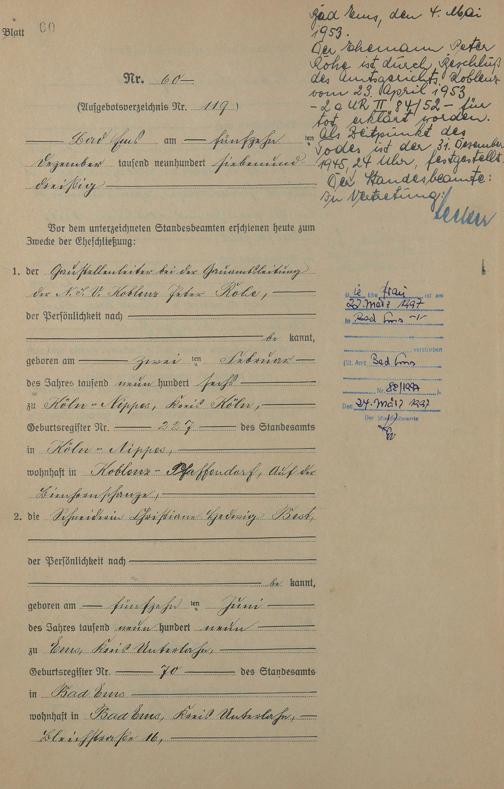 Blatt 60
Nr. 60
(Aufgebotsverzeichnis Nr. 119)
Bad Ems am fünfzehn ten
Dezember tausend neunhundert siebenund
dreißig
Vor dem unterzeichneten Standesbeamten erschienen heute zum
Zwecke der Eheschließung:
1. der Gaustellenleiter bei der Gauamtsleitung
der N.S.V. Koblenz Peter Rohe,
der Persönlichkeit nach
be kannt,
geboren am zwei ten Februar
des Jahres tausend neun hundert sechs
zu Köln-Nippes, Kreis Köln,
Geburtsregister Nr. 227 des Standesamts
in Köln-Nippes,
wohnhaft in Koblenz-Pfaffendorf, Auf der
Bienhornschanze,
2. die Schneiderin Christiane Hedwig Best,
der Persönlichkeit nach
be kannt,
geboren am fünfzehn ten Juni
des Jahres tausend neun hundert neun
zu Ems, Kreis Unterlahn,
Geburtsregister Nr. 70 des Standesamts
in Bad Ems
wohnhaft in Bad Ems, Kreis Unterlahn,
Bleichstraße 16,
Bad Ems, den 4. Mai
1953.
Der Ehemann Peter
Rohe ist durch Beschluß
des Amtsgerichts Koblenz
vom 23. April 1953
- 2a UR II 84/52 - für
tot erklärt worden.
Als Zeitpunkt des
Todes ist der 31. Dezember
1945, 24 Uhr, festgestellt
Der Standesbeamte:
In Vertretung:
Frau ist am
in Bad Ems
verstorben
St. Amt Bad Ems
Nr.
Den 24. März
Der Standesbeamte